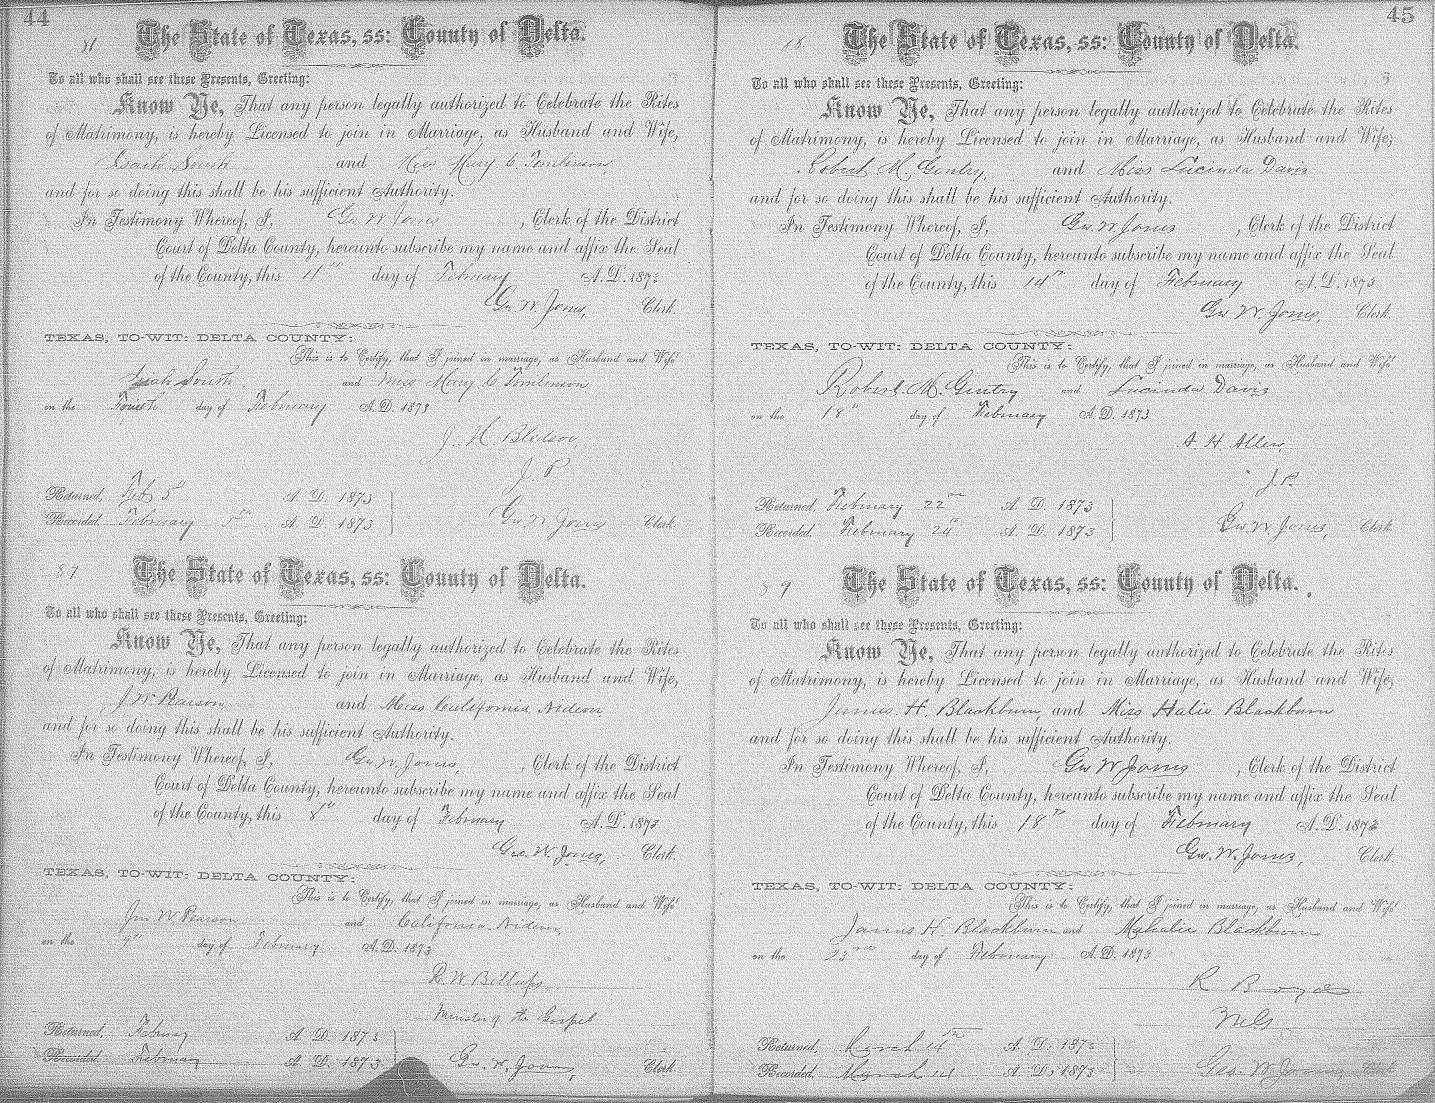 44
The State of Texas, ss: County of Delta.
To all who shall see these Presents, Greeting:
Know Ye, That any person legally authorized to Celebrate the Rites
of Matrimony, is hereby Licensed to join in Marriage, as Husband and Wife,
South and Miss Mary C Tomlinson,
and for so doing this shall be his sufficient Authority.
In Testimony Whereof, I, Geo W Jones , Clerk of the District
Court of Delta County, hereunto subscribe my name and affix the Seal
of the County, this day of February A. D. 1873
Geo W Jones, Clerk.
TEXAS, TO-WIT: DELTA COUNTY:
This is to Certify, that I joined in marriage, as Husband and Wife
South and Miss Mary C Tomlinson
on the Fourth day of February A. D. 1873
J. H. Bledsoe,
J. P
Returned, Feb 5th A. D. 1873
Recorded. February 5th A. D. 1873 Geo W Jones Clerk.
87
The State of Texas, ss: County of Delta.
To all who shall see these Presents, Greeting:
Know Ye, That any person legally authorized to Celebrate the Rites
of Matrimony, is hereby Licensed to join in Marriage, as Husband and Wife,
J. W. Pearson and Miss California
and for so doing this shall be his sufficient Authority.
In Testimony Whereof, I, Geo W Jones, , Clerk of the District
Court of Delta County, hereunto subscribe my name and affix the Seal
of the County, this 8th day of February A. D. 1873
Geo. W. Jones, Clerk.
TEXAS, TO-WIT: DELTA COUNTY:
This is to Certify, that I joined in marriage, as Husband and Wife
Jno W Pearson and California
on the 9th day of February A. D. 1873
R. W. Billups
Minister of the Gospel
Returned, February A. D. 1873
Recorded. February A. D. 1873 Geo. W. Jones, Clerk.
45
The State of Texas, ss: County of Delta.
To all who shall see these Presents, Greeting:
Know Ye, That any person legally authorized to Celebrate the Rites
of Matrimony, is hereby Licensed to join in Marriage, as Husband and Wife,
Robert M. Gentry, and Miss Lucinda Davis
and for so doing this shall be his sufficient Authority.
In Testimony Whereof, I, Geo. W. Jones , Clerk of the District
Court of Delta County, hereunto subscribe my name and affix the Seal
of the County, this 14th day of February A. D. 1873
Geo W. Jones, Clerk.
TEXAS, TO-WIT: DELTA COUNTY:
This is to Certify, that I joined in marriage, as Husband and Wife
Robert. M. Gentry and Lucinda Davis
on the 18th day of February A. D. 1873
A. H. Allen,
J. P.
Returned, February 22nd A. D. 1873
Recorded. February 24th A. D. 1873 Geo W. Jones, Clerk
89
The State of Texas, ss: County of Delta.
To all who shall see these Presents, Greeting:
Know Ye, That any person legally authorized to Celebrate the Rites
of Matrimony, is hereby Licensed to join in Marriage, as Husband and Wife,
James H. Blackburn, and Miss Halie Blackburn
and for so doing this shall be his sufficient Authority.
In Testimony Whereof, I, Geo W Jones , Clerk of the District
Court of Delta County, hereunto subscribe my name and affix the Seal
of the County, this 18th day of February A. D. 1873
Geo. W. Jones, Clerk.
TEXAS, TO-WIT: DELTA COUNTY:
This is to Certify, that I joined in marriage, as Husband and Wife
James H. Blackburn and Mahalie Blackburn
on the 23rd day of February A. D. 1873
R Boyd
M G
Returned, March 14th A. D. 1873
Recorded. March 14 A. D. 1873 Geo. W Jones Clerk